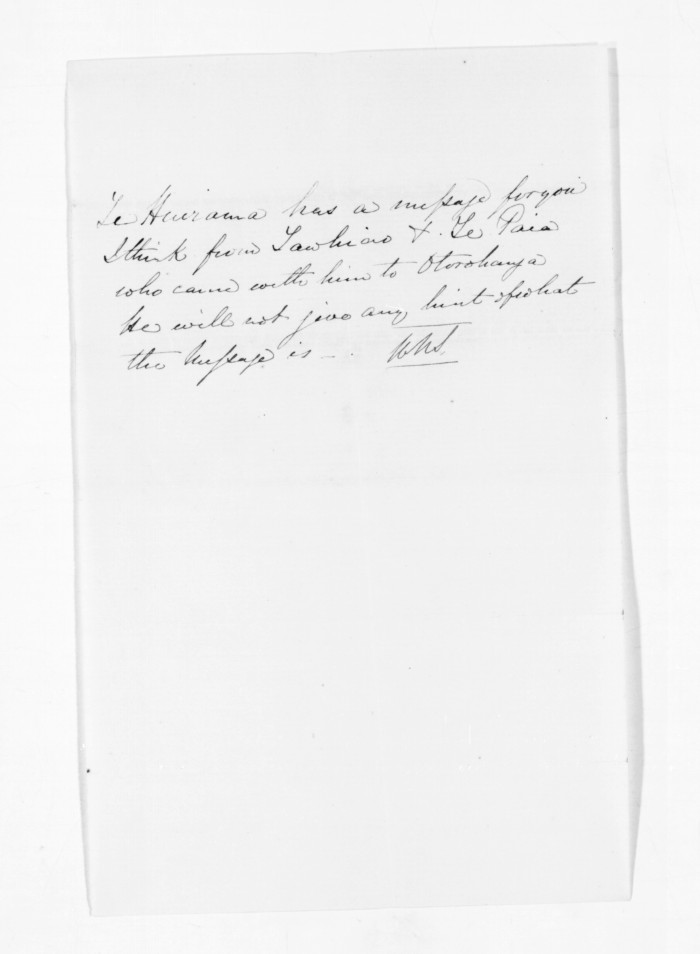 Te Huirama has a message for you
I think from Tawhiao & Te Paea
who came with him to Otorohanga
He will not give any hint of what
the Message is – .